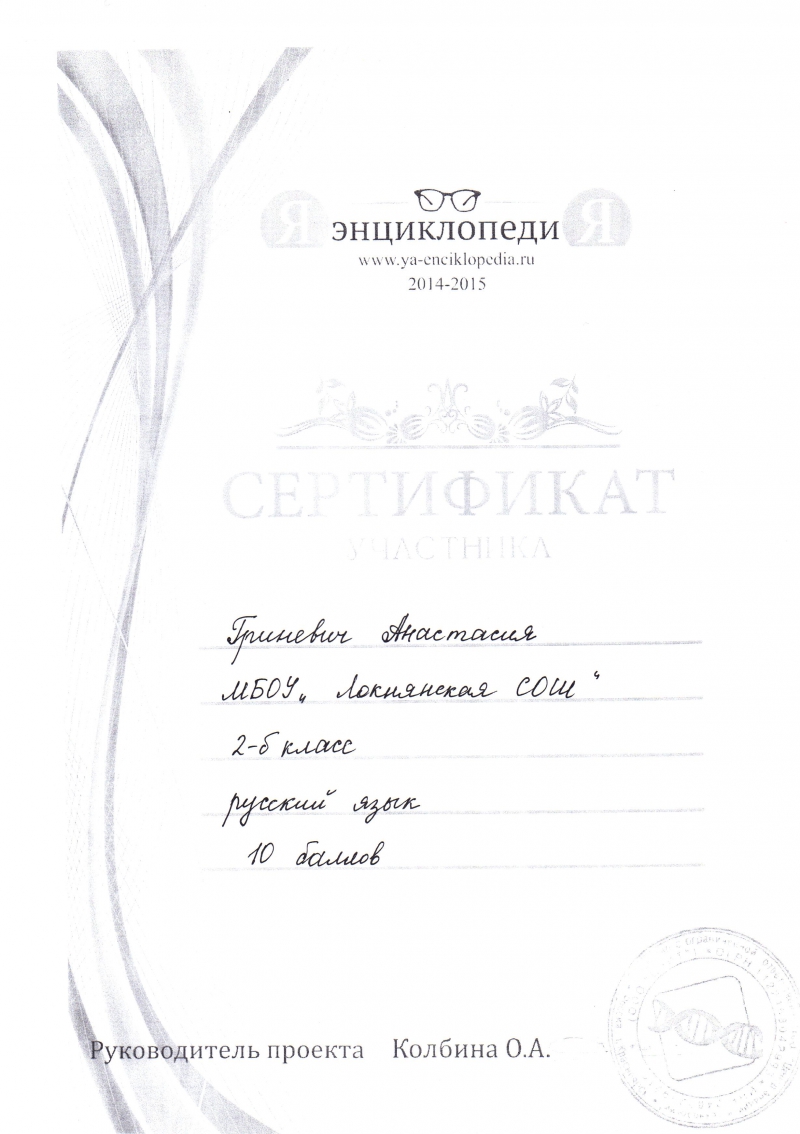 Я ЭНЦИКЛОПЕДИ Я
www.ya-enciklopedia.ru
2014-2015
СЕРТИФИКАТ
УЧАСТНИКА
Гриневич Анастасия
МБОУ „ Локнянская СОШ "
2-б класс
русский язык
10 баллов
Руководитель проекта Колбина О.А.